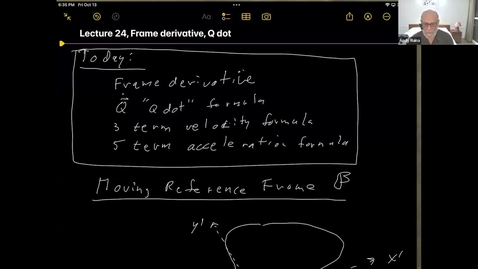 6:35 PM Fri Oct 13
Aa
Lecture 24, Frame derivative, Q dot
Today:
Frame derivative
Q̇ "Q dot" formula
3 term velocity formula
5 term acceleration formula
Moving Reference Frame β
y'
x'